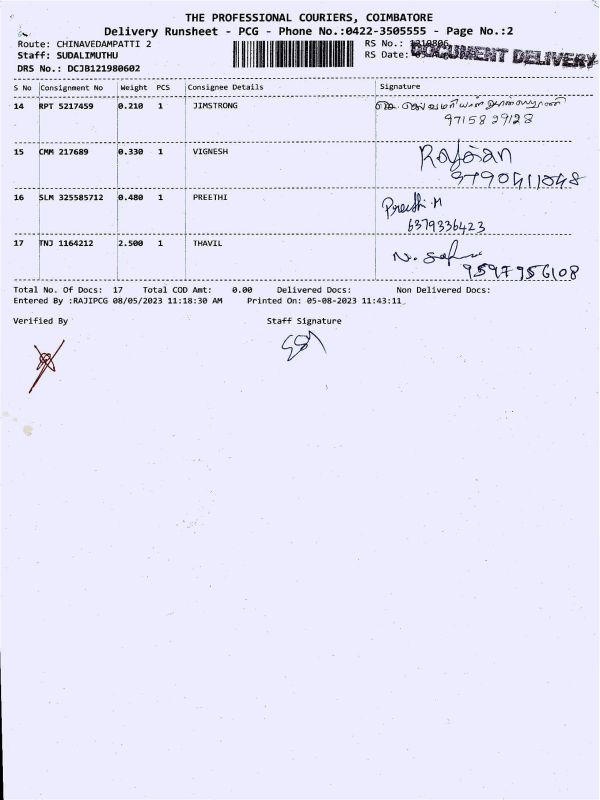 THE PROFESSIONAL COURIERS, COIMBATORE
Delivery Runsheet - PCG - Phone No.:0422-3505555 - Page No.:2
Route: CHINAVEDAMPATTI 2
RS No.:
Staff: SUDALIMUTHU
RS Date:
DOCUMENT DELIVERY
DRS No.: DCJB121980602
S No Consignment No Weight PCS Consignee Details Signature
14 RPT 5217459 0.210 1 JIMSTRONG
97158 29128
15 CMM 217689 0.330 1 VIGNESH Rajesan
9790411048
16 SLM 325585712 0.480 1 PREETHI Preethi M
6379336423
17 TNJ 1164212 2.500 1 THAVIL
9597956108
Total No. Of Docs: 17 Total COD Amt: 0.00 Delivered Docs: Non Delivered Docs:
Entered By :RAJIPCG 08/05/2023 11:18:30 AM Printed On: 05-08-2023 11:43:11
Verified By Staff Signature